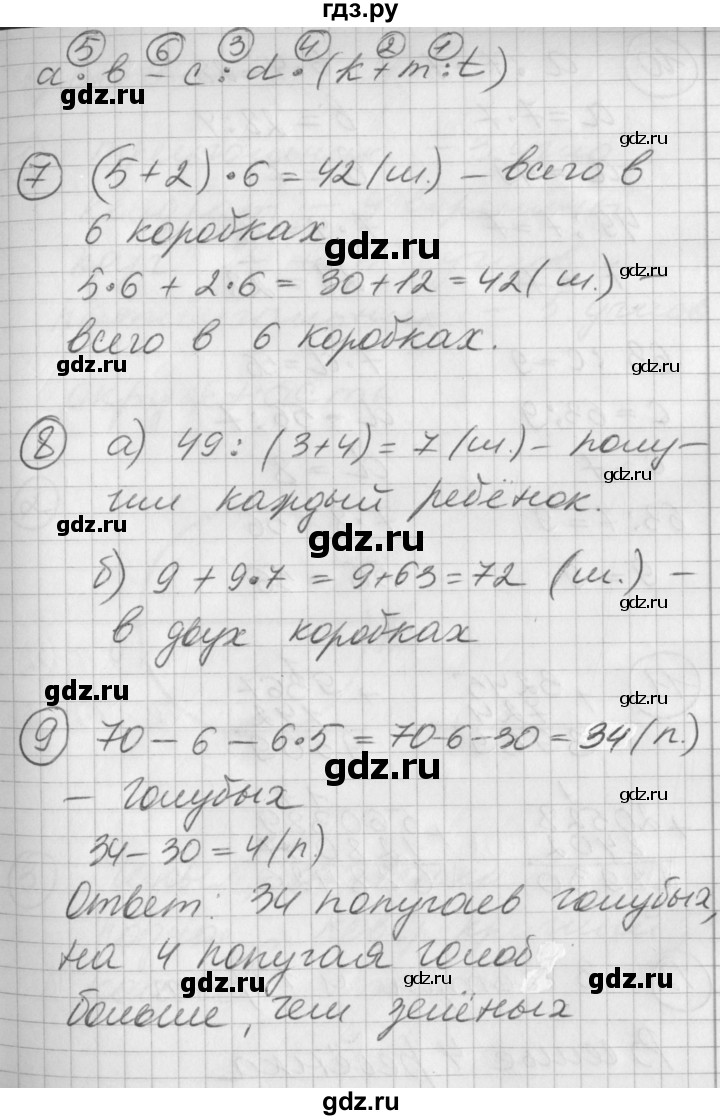 гдз.ру
5 6 3 4 2 1
a : b - c : d · (k + m : t)
gdz.ru
7 (5+2)·6 = 42 (ш.) - всего в
gdz.ru
6 коробках.
gdz.ru
5·6 + 2·6 = 30+12 = 42 (ш.) -
gdz.ru
всего в 6 коробках.
gdz.ru gdz.ru
8 а) 49 : (3+4) = 7 (ш.) - полу-
gdz.ru
чил каждый ребёнок.
gdz.ru
gdz.ru
б) 9 + 9·7 = 9+63 = 72 (ш.) -
gdz.ru
в двух коробках
gdz.ru
gdz.ru
9 70 - 6 - 6·5 = 70-6-30 = 34 (п.)
gdz.ru
gdz.ru
- голубых
34 - 30 = 4 (п)
Ответ: 34 попугаев голубых,
на 4 попугая голоб
gdz.ru gdz.ru gdz.ru
больше, чем зелёных
gdz.ru
gdz.ru